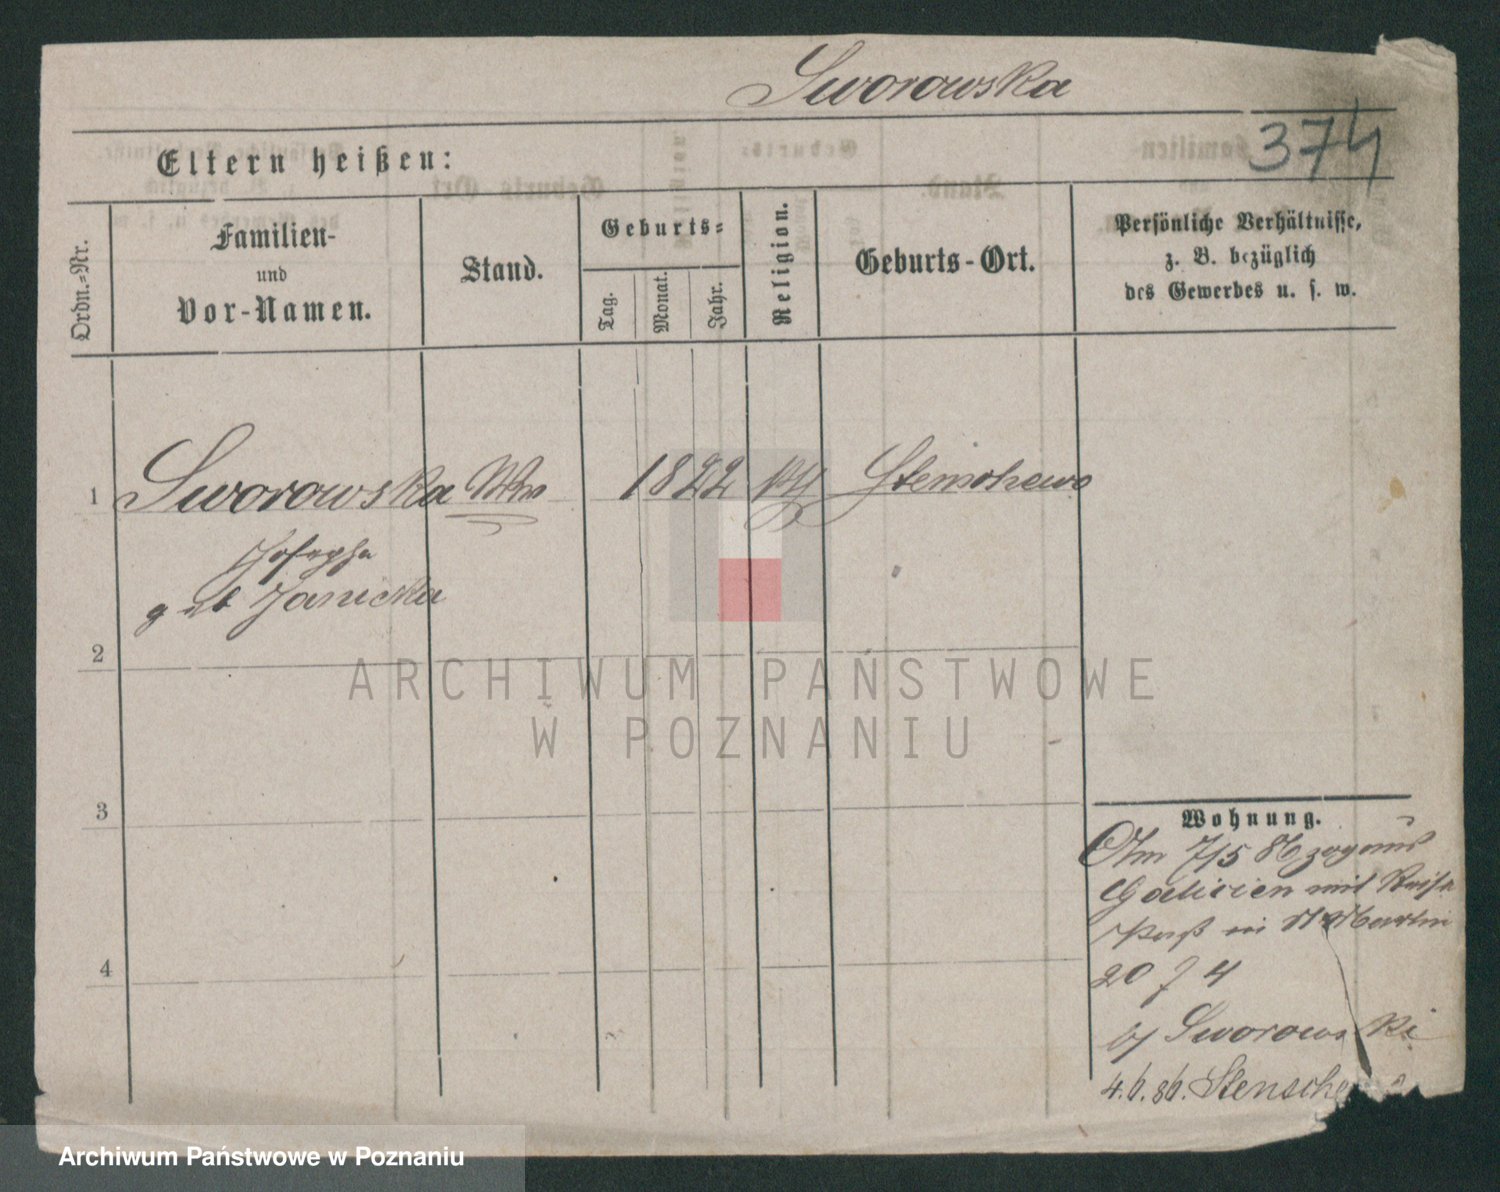 Sworowska
374
Eltern heißen:
Ordn.-Nr.
Familien-
und
Vor-Namen.
Stand.
Geburts-
Tag.
Monat.
Jahr.
Religion.
Geburts-Ort.
Persönliche Verhältnisse,
z. B. bezüglich
des Gewerbes u. s. w.
1 Sworowska Wwe 1822 Stenschewo
Josepha
geb Janicka
2
3
4
Wohnung.
Am 7/5 86 zog aus
Galizien mit Reise
Paß in St Martin
20 4
Sworowski
4.6.86. Stensche
ARCHIWUM PAŃSTWOWE
W POZNANIU
Archiwum Państwowe w Poznaniu